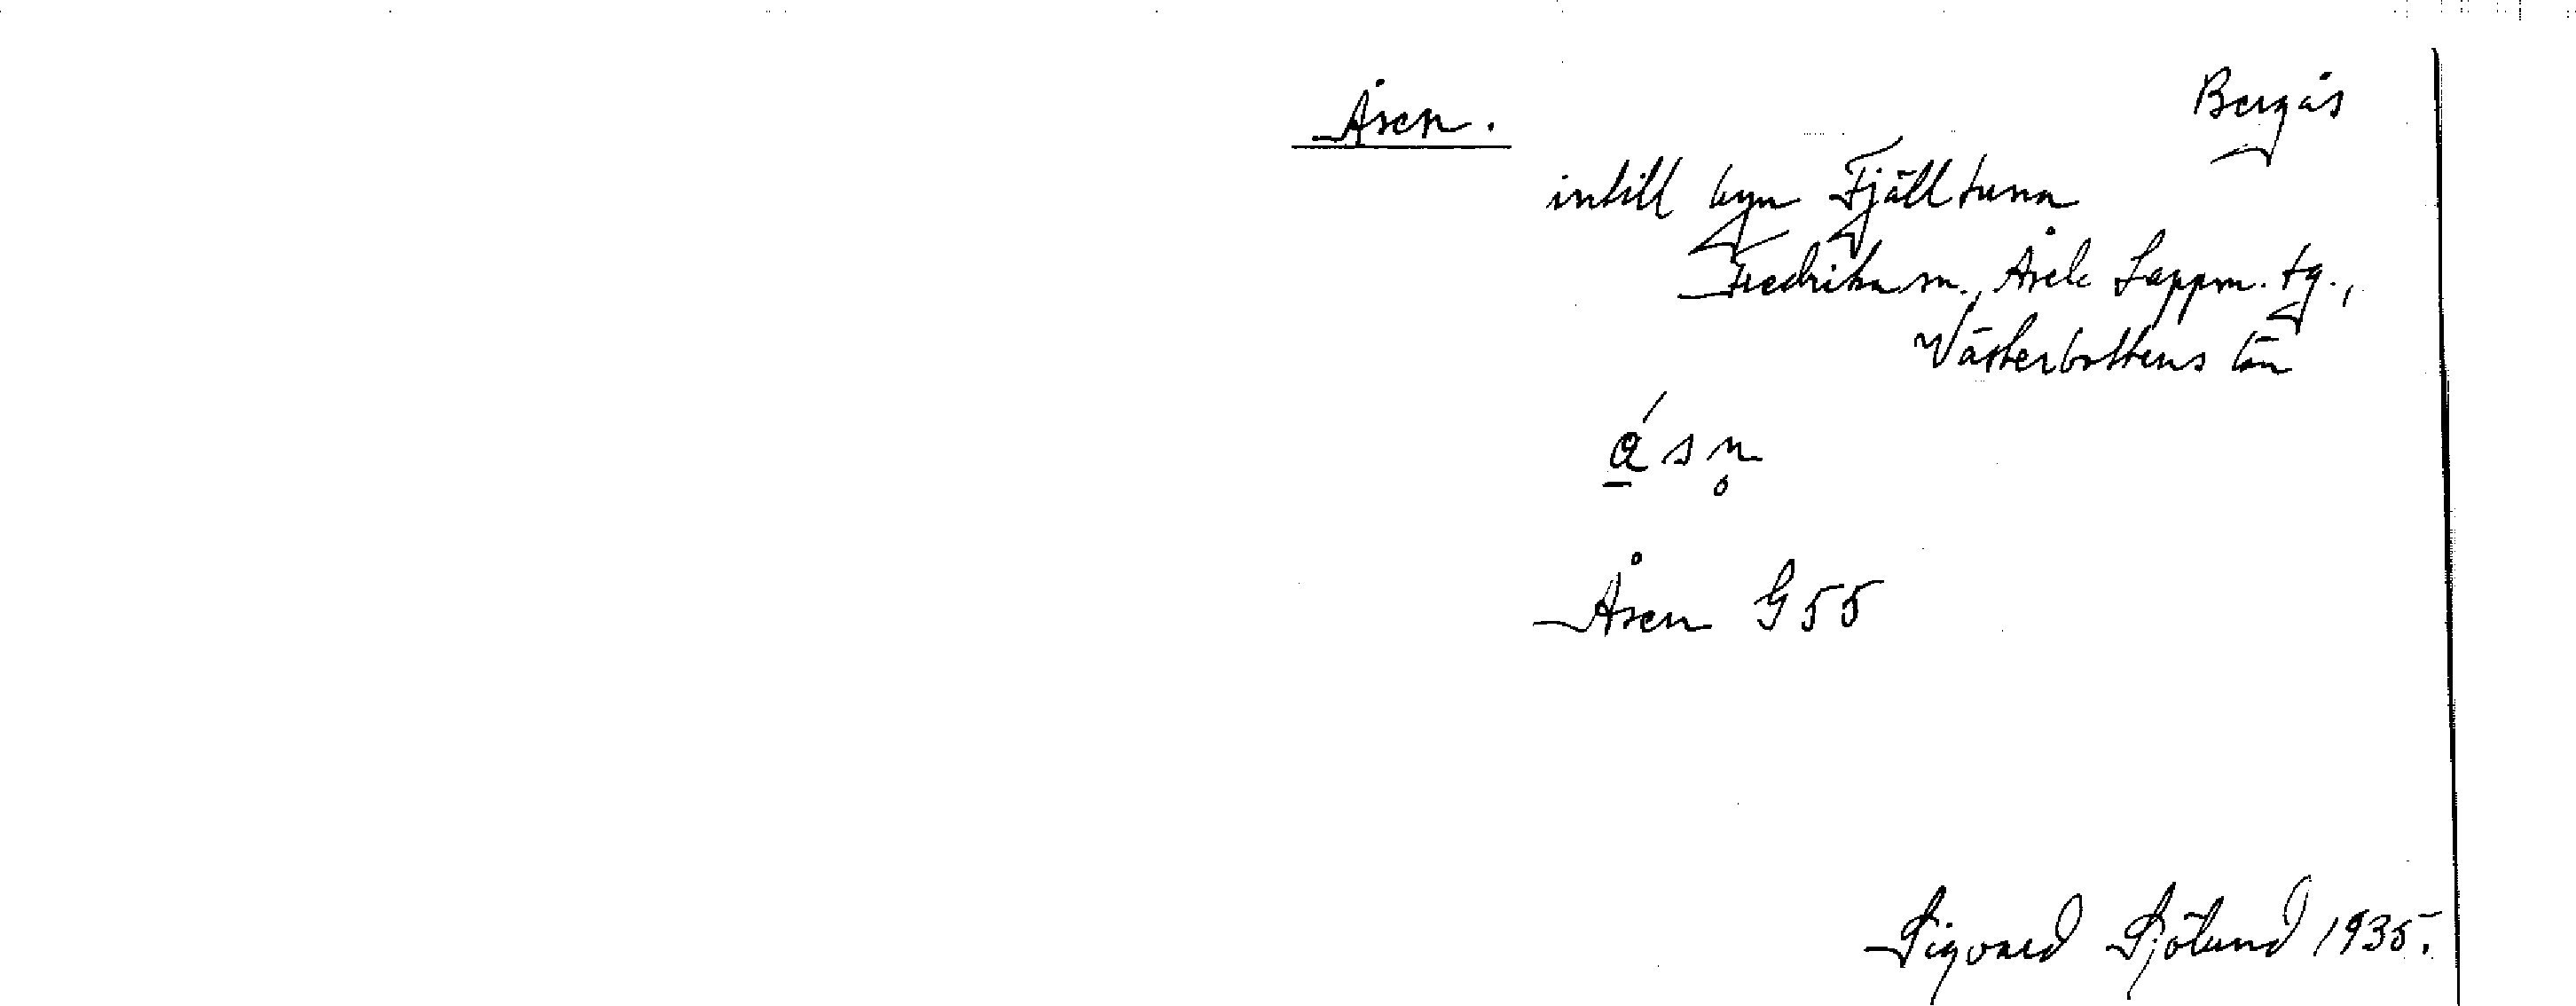 Åsen. Bergås
intill byn Fjälltuna
Fredrika sn., Åsele Lappm. tg.,
Västerbottens län
ǻsn̥
Åsen G55
Sigvard Sjölund 1935.